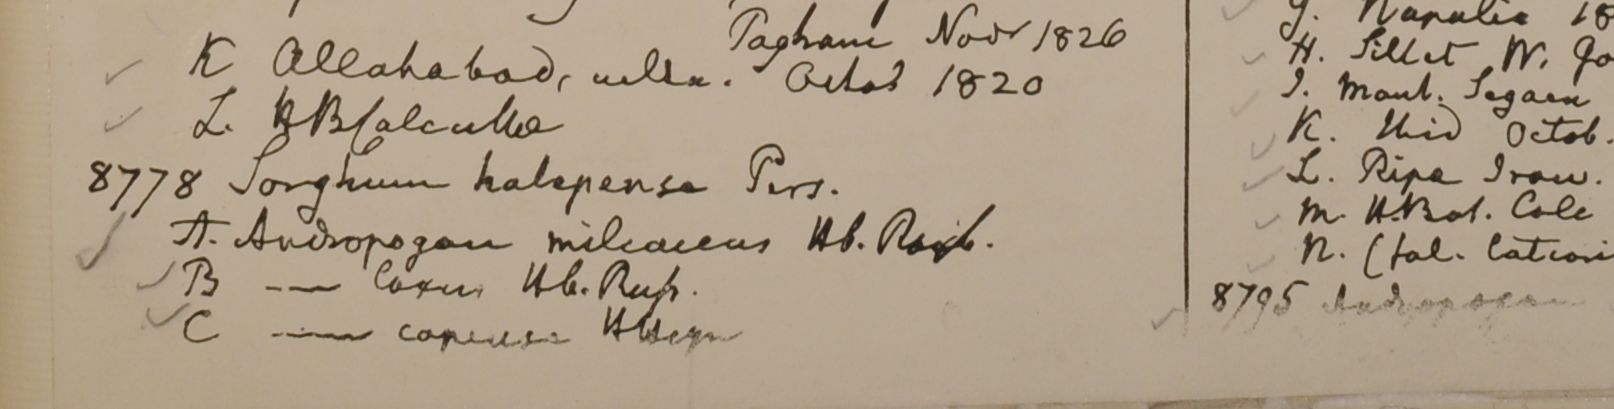 Pagham Novr 1826
K Allahabad, ultra. Octob 1820
L. HB Calcutta
8778 Sorghum halepense Pers.
A. Andropogon miliaceus Hb. Roxb.
B — laxus Hb. Russ.
C — Hb Heyn
G. Napalia 18
H. Sillet W. Go
I. Mont. Segaen
K. Ibid Octob.
L. Ripa Iraw.
M. H. Bot. Calc
N. (fol.
8795 Andropogon